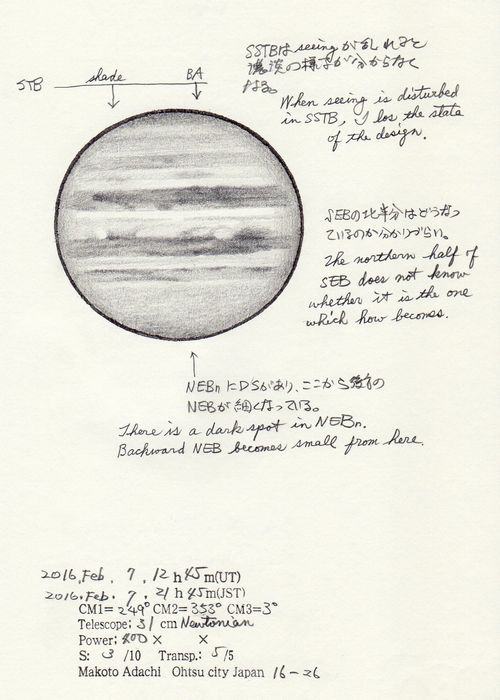 SSTBはseeingが乱れると
濃淡の様子が分からなく
なる。
STB shade BA
When seeing is disturbed
in SSTB, I los the state
of the design.
SEBの北半分はどうなっ
ているのか分かりづらい。
The northern half of
SEB does not know
whether it is the one
which how becomes.
NEBnにDSがあり、ここから後方の
NEBが細くなっている。
There is a dark spot in NEBn.
Backward NEB becomes small from here.
2016.Feb. 7, 12 h 45 m(UT)
2016.Feb. 7, 21 h 45 m(JST)
CM1= 249° CM2= 353° CM3= 3°
Telescope; 31 cm Newtonian
Power; 400 × ×
S: 3 /10 Transp.: 5/5
Makoto Adachi Ohtsu city Japan 16-26